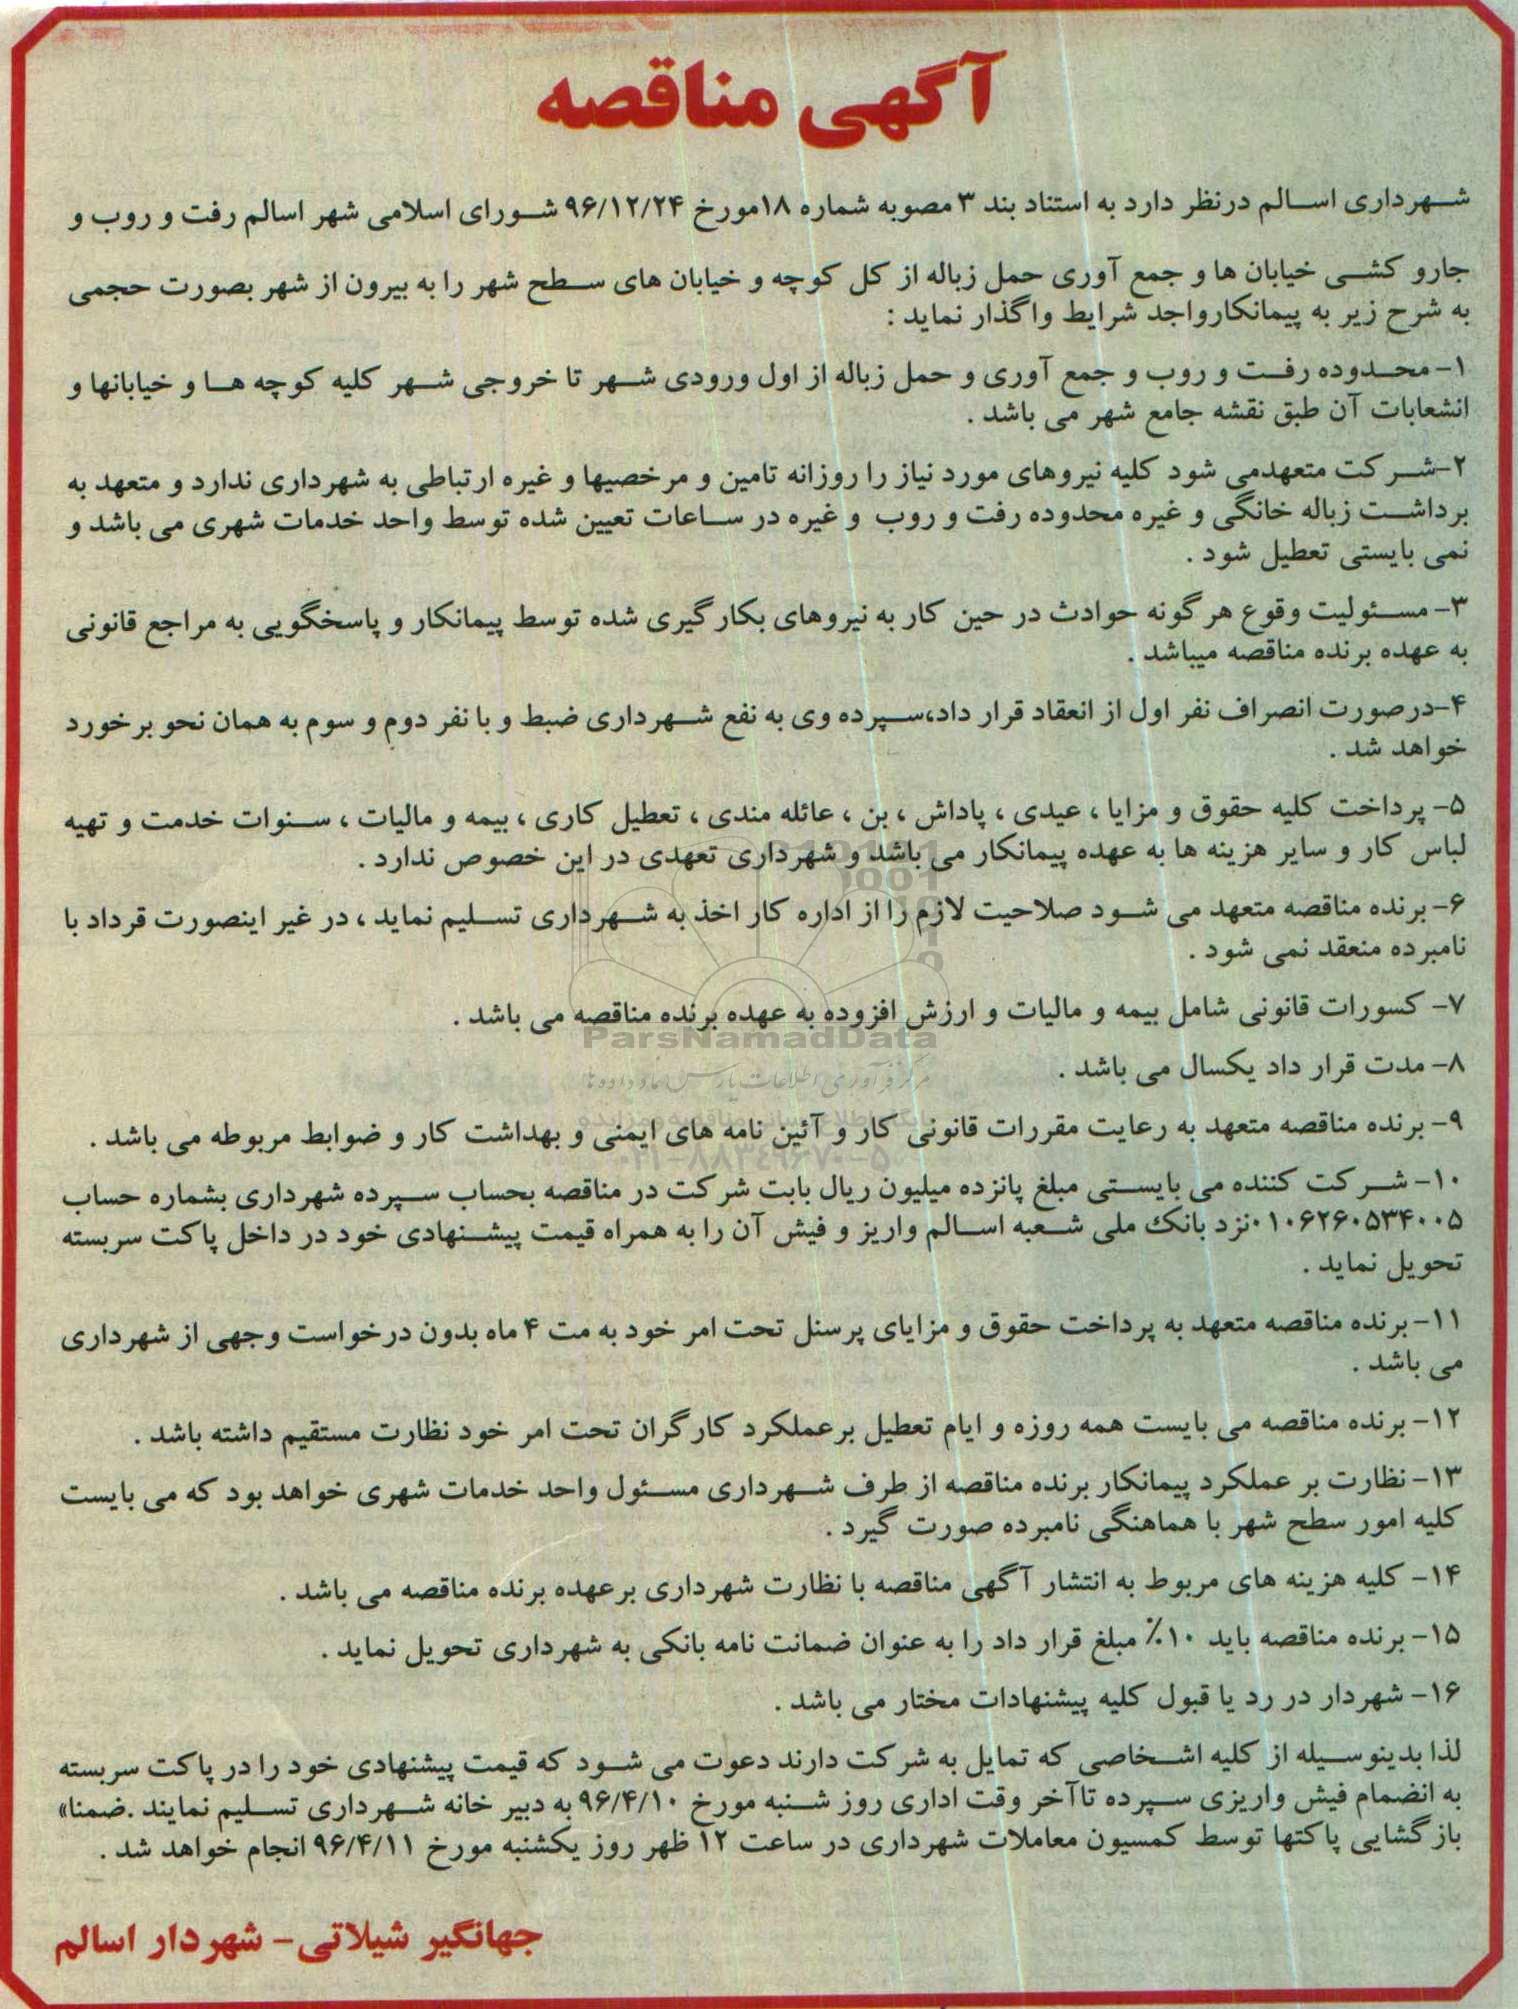 آگهی مناقصه
شهرداری اسالم درنظر دارد به استناد بند ۳ مصوبه شماره ۱۸مورخ ۹۶/۱۲/۲۴ شورای اسلامی شهر اسالم رفت و روب و
جارو کشی خیابان ها و جمع آوری حمل زباله از کل کوچه و خیابان های سطح شهر را به بیرون از شهر بصورت حجمی
به شرح زیر به پیمانکارواجد شرایط واگذار نماید :
۱- محدوده رفت و روب و جمع آوری و حمل زباله از اول ورودی شهر تا خروجی شهر کلیه کوچه ها و خیابانها و
انشعابات آن طبق نقشه جامع شهر می باشد .
۲-شرکت متعهدمی شود کلیه نیروهای مورد نیاز را روزانه تامین و مرخصیها و غیره ارتباطی به شهرداری ندارد و متعهد به
برداشت زباله خانگی و غیره محدوده رفت و روب و غیره در ساعات تعیین شده توسط واحد خدمات شهری می باشد و
نمی بایستی تعطیل شود .
۳- مسئولیت وقوع هرگونه حوادث در حین کار به نیروهای بکارگیری شده توسط پیمانکار و پاسخگویی به مراجع قانونی
به عهده برنده مناقصه میباشد .
۴-درصورت انصراف نفر اول از انعقاد قرار داد،سپرده وی به نفع شهرداری ضبط و با نفر دوم و سوم به همان نحو برخورد
خواهد شد .
۵- پرداخت کلیه حقوق و مزایا ، عیدی ، پاداش ، بن ، عائله مندی ، تعطیل کاری ، بیمه و مالیات ، سنوات خدمت و تهیه
لباس کار و سایر هزینه ها به عهده پیمانکار می باشد و شهرداری تعهدی در این خصوص ندارد .
۶- برنده مناقصه متعهد می شود صلاحیت لازم را از اداره کار اخذ به شهرداری تسلیم نماید ، در غیر اینصورت قرداد با
نامبرده منعقد نمی شود .
۷- کسورات قانونی شامل بیمه و مالیات و ارزش افزوده به عهده برنده مناقصه می باشد .
ParsNamadData
۸- مدت قرار داد یکسال می باشد .
مرکز فرآوری اطلاعات پارس نماد داده ها
۹- برنده مناقصه متعهد به رعایت مقررات قانونی کار و آئین نامه های ایمنی و بهداشت کار و ضوابط مربوطه می باشد .
۰۲۱-۸۸۳۴۹۶۷۰-۵
۱۰- شرکت کننده می بایستی مبلغ پانزده میلیون ریال بابت شرکت در مناقصه بحساب سپرده شهرداری بشماره حساب
۰۱۰۶۲۶۰۵۳۴۰۰۵نزد بانک ملی شعبه اسالم واریز و فیش آن را به همراه قیمت پیشنهادی خود در داخل پاکت سربسته
تحویل نماید .
۱۱- برنده مناقصه متعهد به پرداخت حقوق و مزایای پرسنل تحت امر خود به مت ۴ ماه بدون درخواست وجهی از شهرداری
می باشد .
۱۲- برنده مناقصه می بایست همه روزه و ایام تعطیل برعملکرد کارگران تحت امر خود نظارت مستقیم داشته باشد .
۱۳- نظارت بر عملکرد پیمانکار برنده مناقصه از طرف شهرداری مسئول واحد خدمات شهری خواهد بود که می بایست
کلیه امور سطح شهر با هماهنگی نامبرده صورت گیرد .
۱۴- کلیه هزینه های مربوط به انتشار آگهی مناقصه با نظارت شهرداری برعهده برنده مناقصه می باشد .
۱۵- برنده مناقصه باید ۱۰٪ مبلغ قرار داد را به عنوان ضمانت نامه بانکی به شهرداری تحویل نماید .
۱۶- شهردار در رد یا قبول کلیه پیشنهادات مختار می باشد .
لذا بدینوسیله از کلیه اشخاصی که تمایل به شرکت دارند دعوت می شود که قیمت پیشنهادی خود را در پاکت سربسته
به انضمام فیش واریزی سپرده تاآخر وقت اداری روز شنبه مورخ ۹۶/۴/۱۰ به دبیر خانه شهرداری تسلیم نمایند .ضمنا»
بازگشایی پاکتها توسط کمسیون معاملات شهرداری در ساعت ۱۲ ظهر روز یکشنبه مورخ ۹۶/۴/۱۱ انجام خواهد شد .
جهانگیر شیلاتی- شهردار اسالم